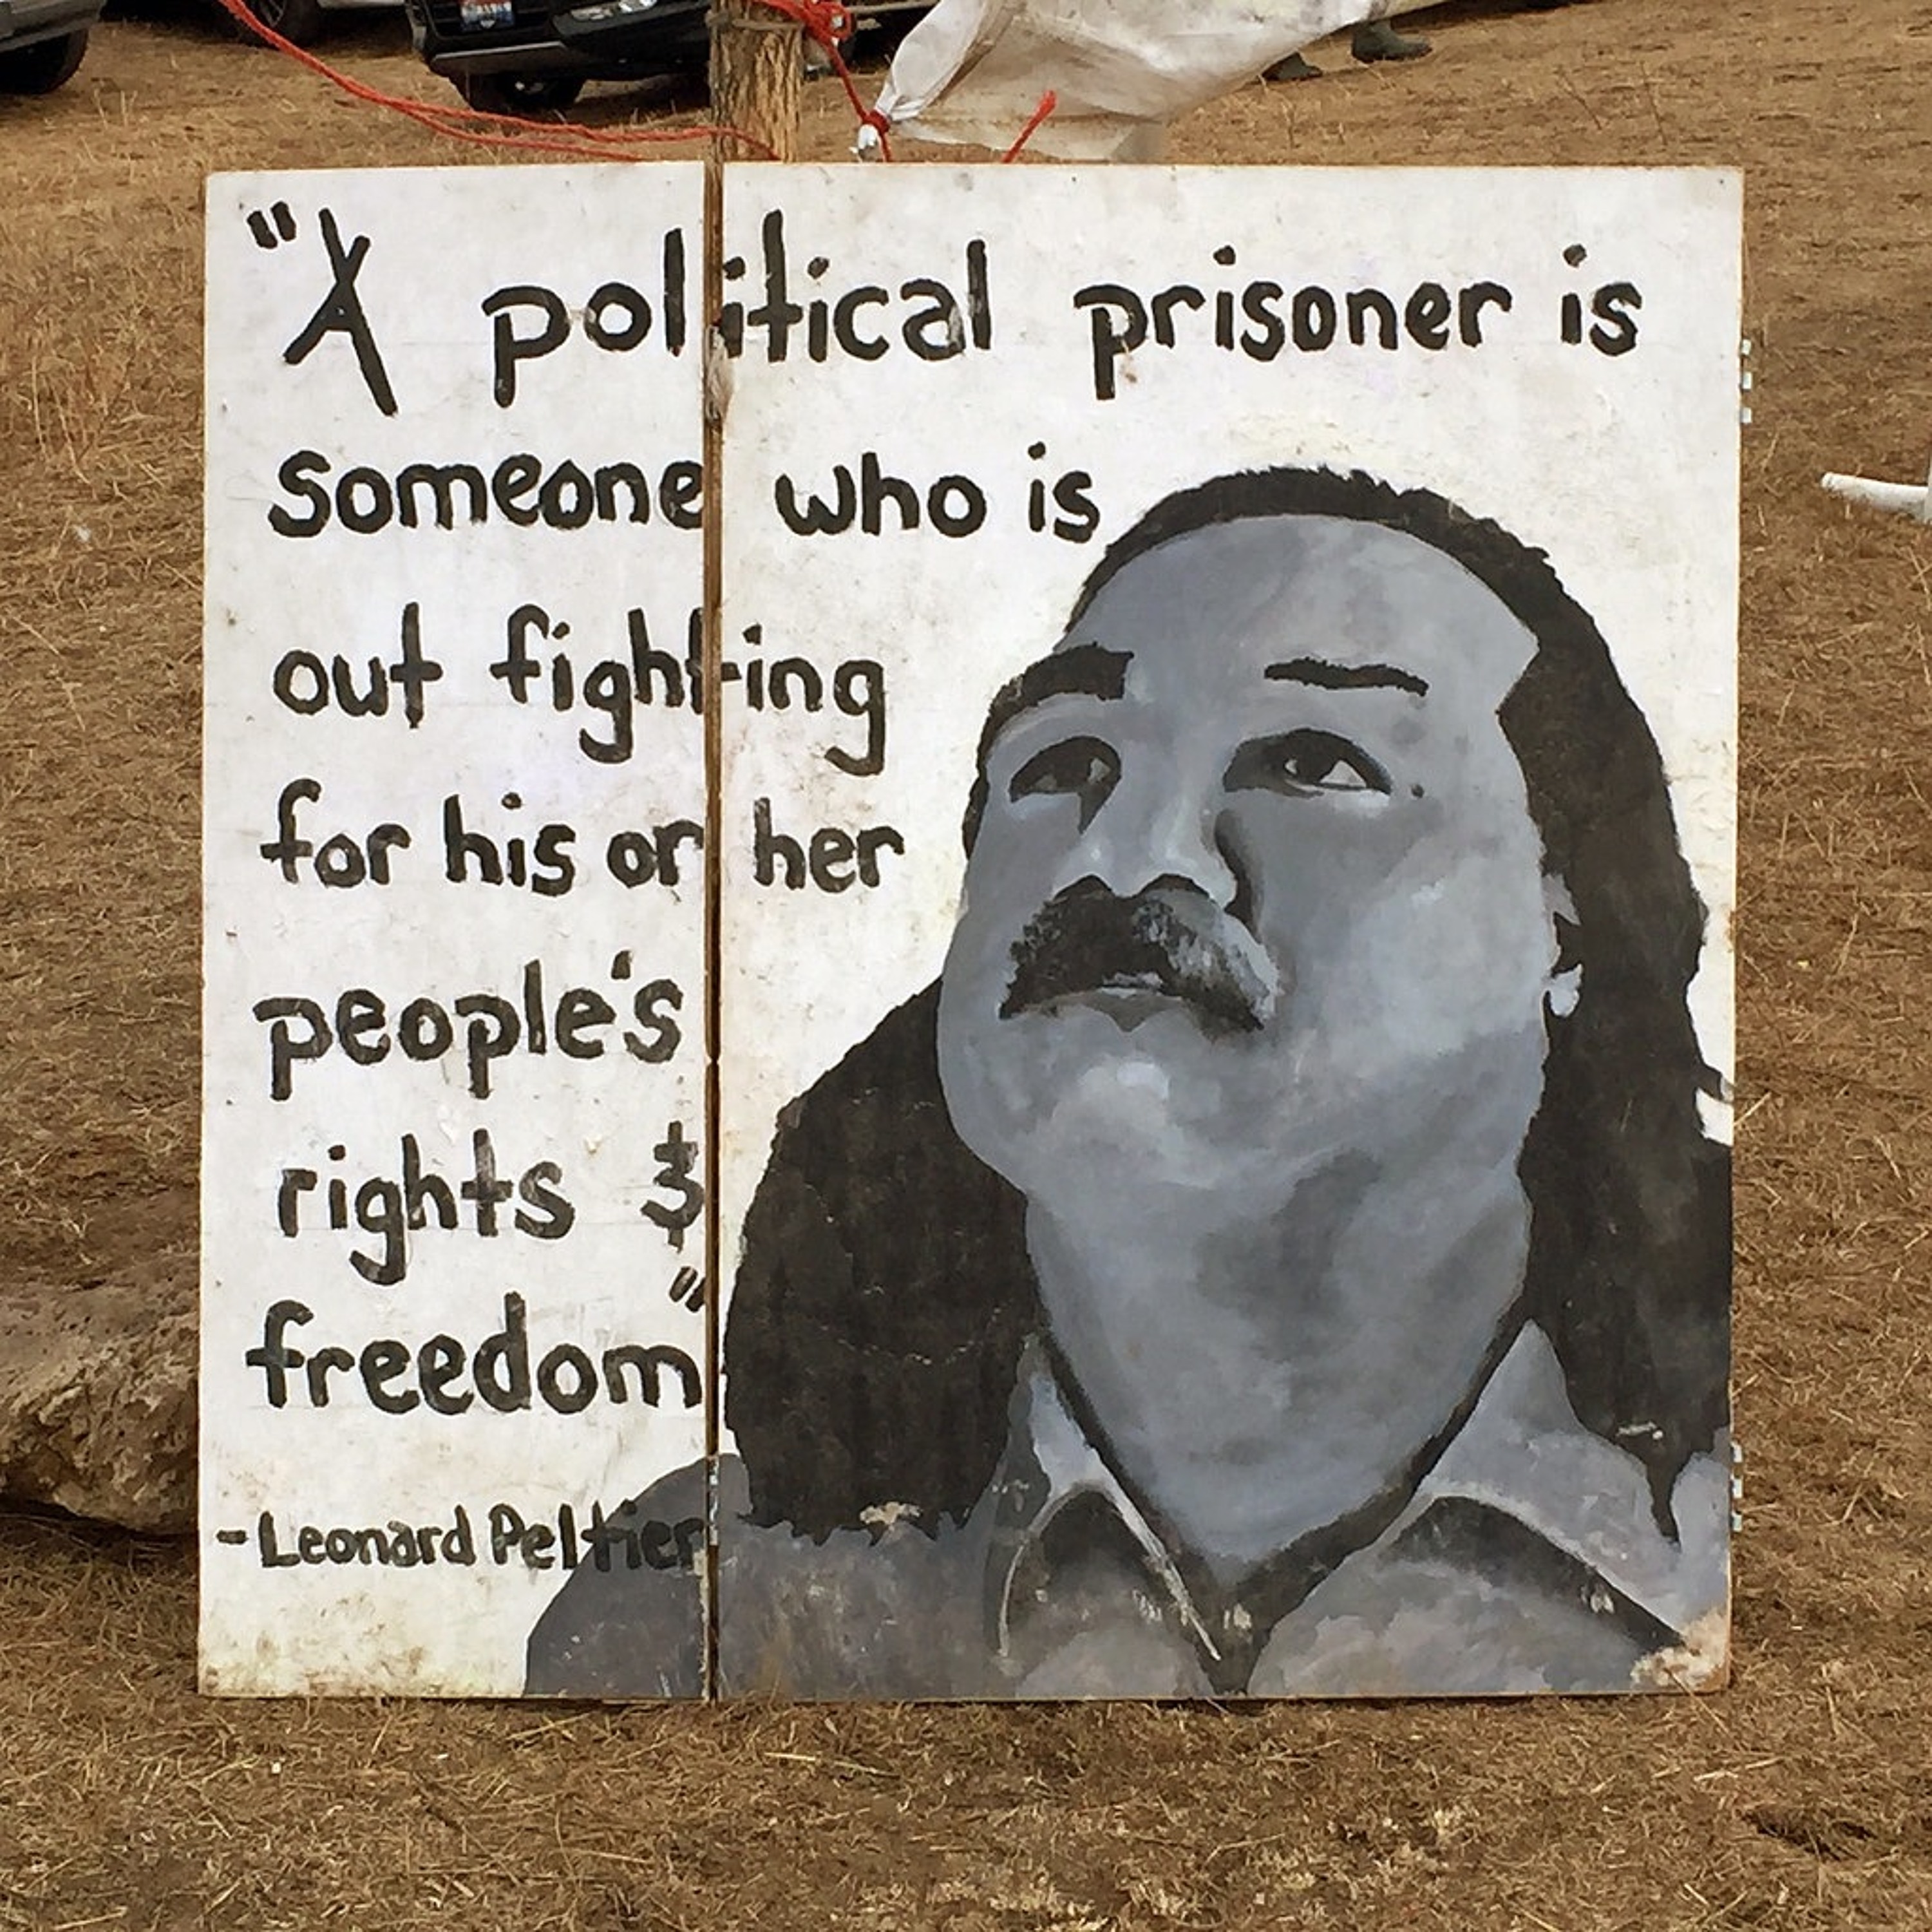 "A political prisoner is
someone who is
out fighting
for his or her
people's
rights &
freedom"
-Leonard Peltier